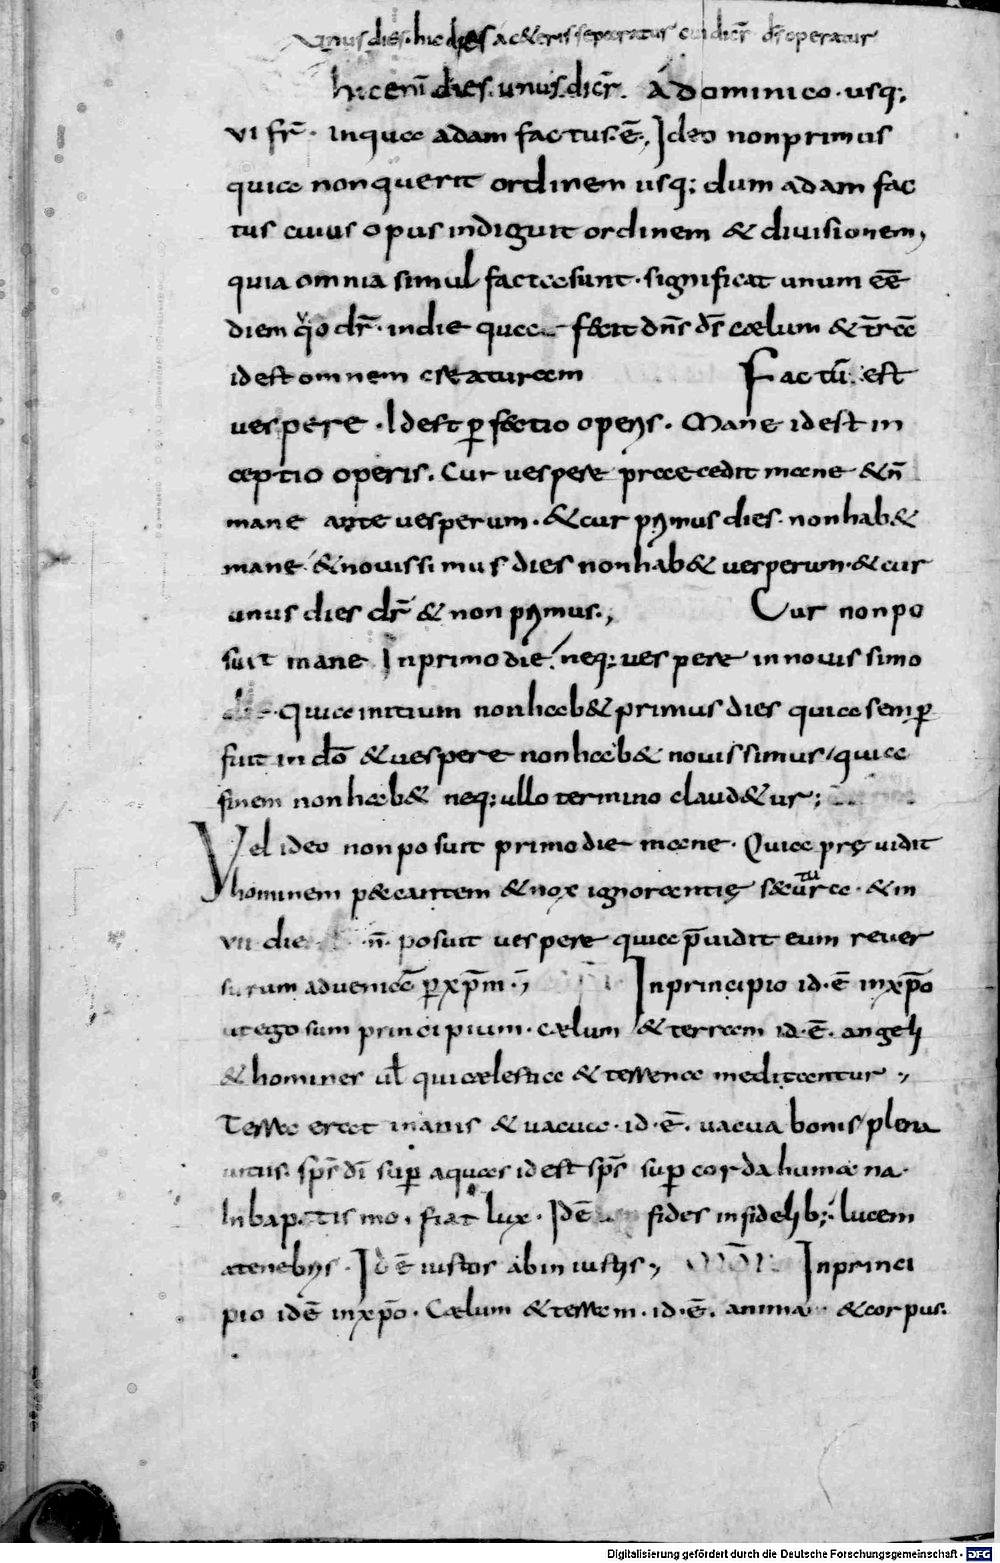 unus dies. hic dies a c&eris separatus cui dicr̄ ds̄ operatur
hic eni dies. unus. dicr̄. A dominico. usq;
vi fr̄. Inqua adam factus. ē., Ideo non primus
quia non querit ordinem usq; dum adam fac
tus cuius opus indiguit ordinem & divisionem,
quia omnia simul facta sunt. significat unum ēē
diem q̄o dr̄. indie qua fecit dn̄s ds̄ cælum & tr̄ā
idest omnem creaturam Factū. est
vespere. Idest p̄fectio operis. Mane idest in
ceptio operis. Cur vespere præcedit mane & n̄
mane ante vesperum. & cur primus dies. non hab&
mane & novissimus dies non hab& vesperum. & cur
unus dies dr̄ & non primus., Cur non po
suit mane Inprimo die. neq; vespere innovissimo
die. Quia initium non hab& primus dies quia semp̄
fuit in dō & vespere non hab& novissimus, quia
finem non hab& neq; ullo termino claud&ur;
Vel ideo non posuit primo die mane. Quia pręvidit
hominem peccantem & nox ignorantię secutura. & in
vii die n̄. posuit vespere quia p̄vidit eum rever
surum ad veniā p̄ xp̄m., Inprincipio id. ē inxp̄o
ut ego sum principium. cælum & terram id. ē. angeli
& homines vl̄ qui cælestia & terrena meditantur.,
Terra erat inanis & vacua. id. ē. vacua bonis, plena
vitiis. sp̄s dī sup̄ aquas idest sp̄s sup̄ corda humana.
In baptismo. fiat lux. Idē fides infidelib;. lucem
atenebris. Id ē iustos ab iniustis., Inprinci
pio idē inxp̄o. Cælum & terram. id. ē. anima & corpus.
Digitalisierung gefördert durch die Deutsche Forschungsgemeinschaft - DFG